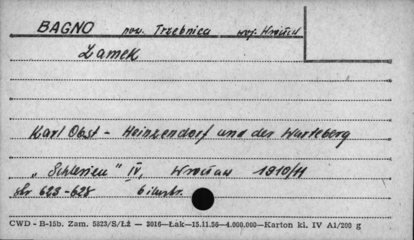 BAGNO pow. Trzebnica woj. Wrocław
Zamek
Karl Obst - Heinzendorf und der Warteberg
„Schlesien" IV, Wrocław 1910/11
str 623-628 6 ilustr.
CWD - B-15b. Zam. 5823/S/Łż — 3016—Łak—15.11.56—4.000.000—Karton kl. IV A1/200 g